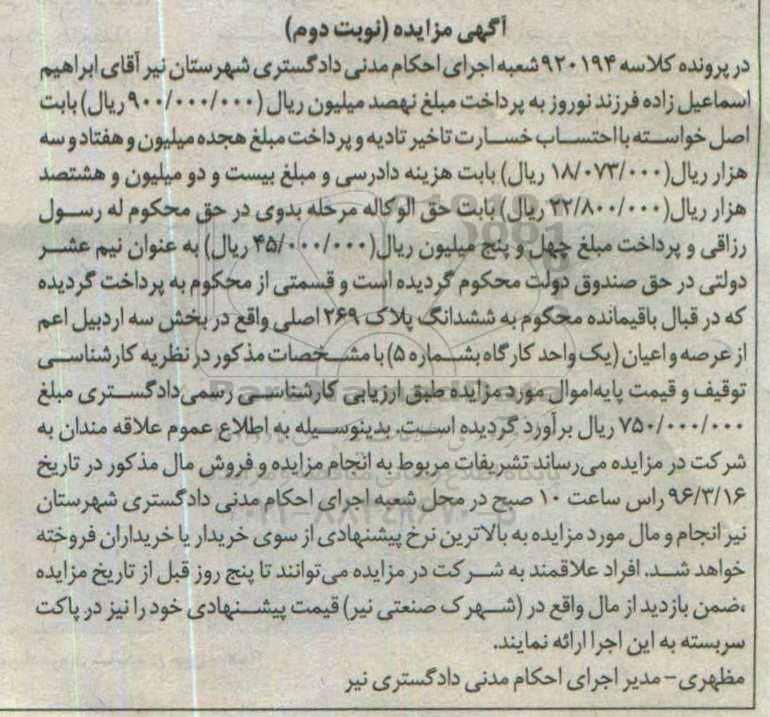 آگهی مزایده (نوبت دوم)
در پرونده کلاسه ۹۲۰۱۹۴ شعبه اجرای احکام مدنی دادگستری شهرستان نیر آقای ابراهیم
اسماعیل زاده فرزند نوروز به پرداخت مبلغ نهصد میلیون ریال (۹۰۰/۰۰۰/۰۰۰ ریال) بابت
اصل خواسته با احتساب خسارت تاخیر تادیه و پرداخت مبلغ هجده میلیون و هفتاد و سه
هزار ریال (۱۸/۰۷۳/۰۰۰ ریال) بابت هزینه دادرسی و مبلغ بیست و دو میلیون و هشتصد
هزار ریال (۲۲/۸۰۰/۰۰۰ ریال) بابت حق الوکاله مرحله بدوی در حق محکوم له رسول
رزاقی و پرداخت مبلغ چهل و پنج میلیون ریال (۴۵/۰۰۰/۰۰۰ ریال) به عنوان نیم عشر
دولتی در حق صندوق دولت محکوم گردیده است و قسمتی از محکوم به پرداخت گردیده
که در قبال باقیمانده محکوم به ششدانگ پلاک ۲۶۹ اصلی واقع در بخش سه اردبیل اعم
از عرصه و اعیان (یک واحد کارگاه بشماره ۵) با مشخصات مذکور در نظریه کارشناسی
توقیف و قیمت پایه اموال مورد مزایده طبق ارزیابی کارشناسی رسمی دادگستری مبلغ
۷۵۰/۰۰۰/۰۰۰ ریال برآورد گردیده است. بدینوسیله به اطلاع عموم علاقه مندان به
شرکت در مزایده می‌رساند تشریفات مربوط به انجام مزایده و فروش مال مذکور در تاریخ
۹۶/۳/۱۶ راس ساعت ۱۰ صبح در محل شعبه اجرای احکام مدنی دادگستری شهرستان
نیر انجام و مال مورد مزایده به بالاترین نرخ پیشنهادی از سوی خریدار یا خریداران فروخته
خواهد شد. افراد علاقمند به شرکت در مزایده می‌توانند تا پنج روز قبل از تاریخ مزایده
،ضمن بازدید از مال واقع در (شهرک صنعتی نیر) قیمت پیشنهادی خود را نیز در پاکت
سربسته به این اجرا ارائه نمایند.
مظهری - مدیر اجرای احکام مدنی دادگستری نیر